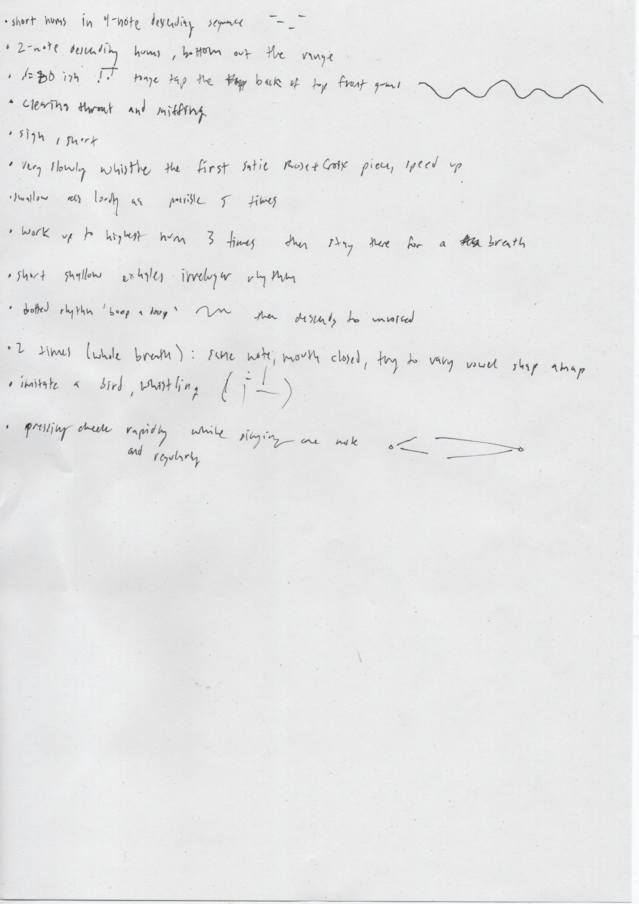 • short hums in 4-note descending sequence
• 2-note descending hums, bottom out the range
• ♩=80 ish tongue tap the back of top front gums
• clearing throat and sniffing
• sigh, short
• very slowly whistle the first satie Rose+Croix piece, speed up
• swallow as loudly as possible 5 times
• work up to highest hum 3 times then stay there for a breath
• short shallow exhales irregular rhythm
• dotted rhythm 'boop a doop' then descends to unvoiced
• 2 times (whole breath): same note, mouth closed, try to vary vowel shap amap
• imitate a bird, whistling
• pressing cheek rapidly while singing one note
and regularly